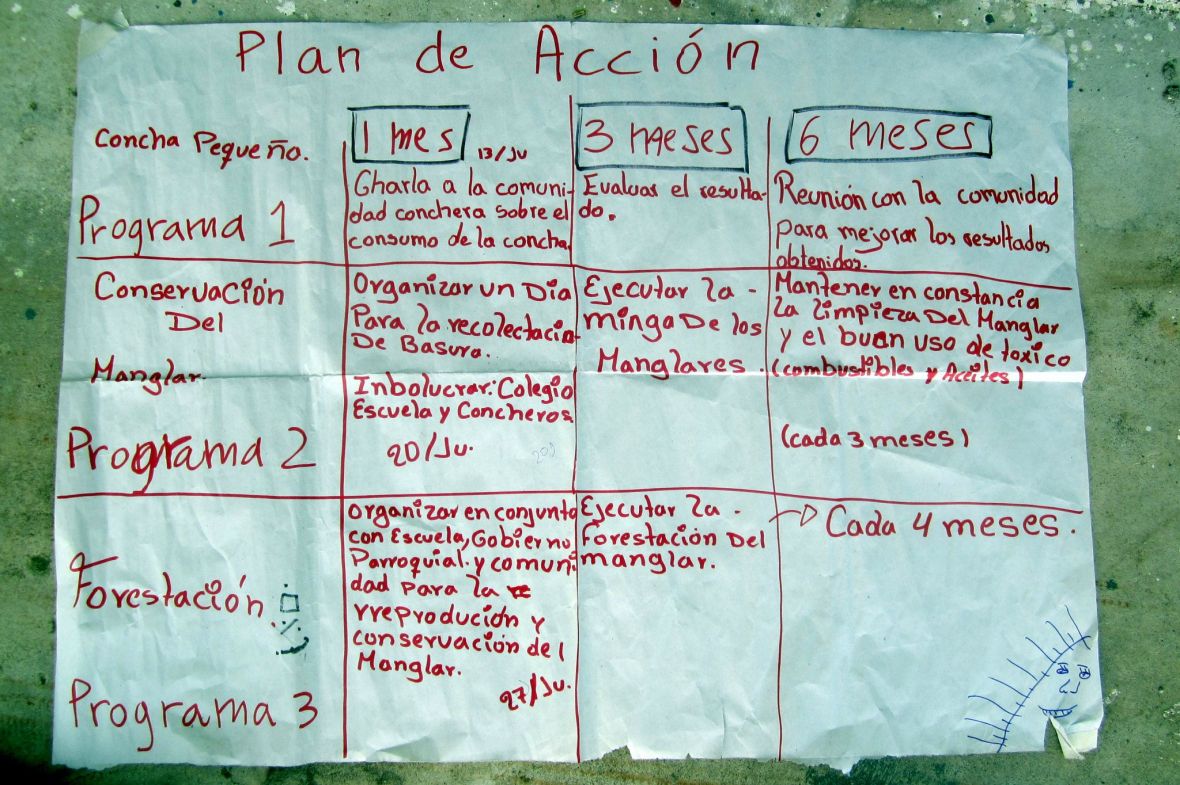 Plan de Acción
Concha Pequeño.
1 mes
13/Ju
3 meses
6 meses
Programa 1
Gharla a la comuni-
dad conchera sobre el
consumo de la concha.
Evaluar el resulta-
do.
Reunión con la comunidad
para mejorar los resultados
obtenidos.
Conservación
Del
Manglar.
Programa 2
Organizar un Día
Para la recolectacio-
De Basura.
Inbolucrar: Colegio
Escuela y Concheros
20/Ju.
Ejecutar la -
minga De los
Manglares.
Mantener en constancia
La limpieza Del Manglar
y el buen uso de toxico
(combustibles y Aceites)
(cada 3 meses)
Forestación.
Programa 3
organizar en conjunto
con Escuela, Gobierno
Parroquial. y comuni
dad para la
rreprodución y
conservación del
Manglar.
27/Ju.
Ejecutar la -
Forestación Del
manglar.
Cada 4 meses.